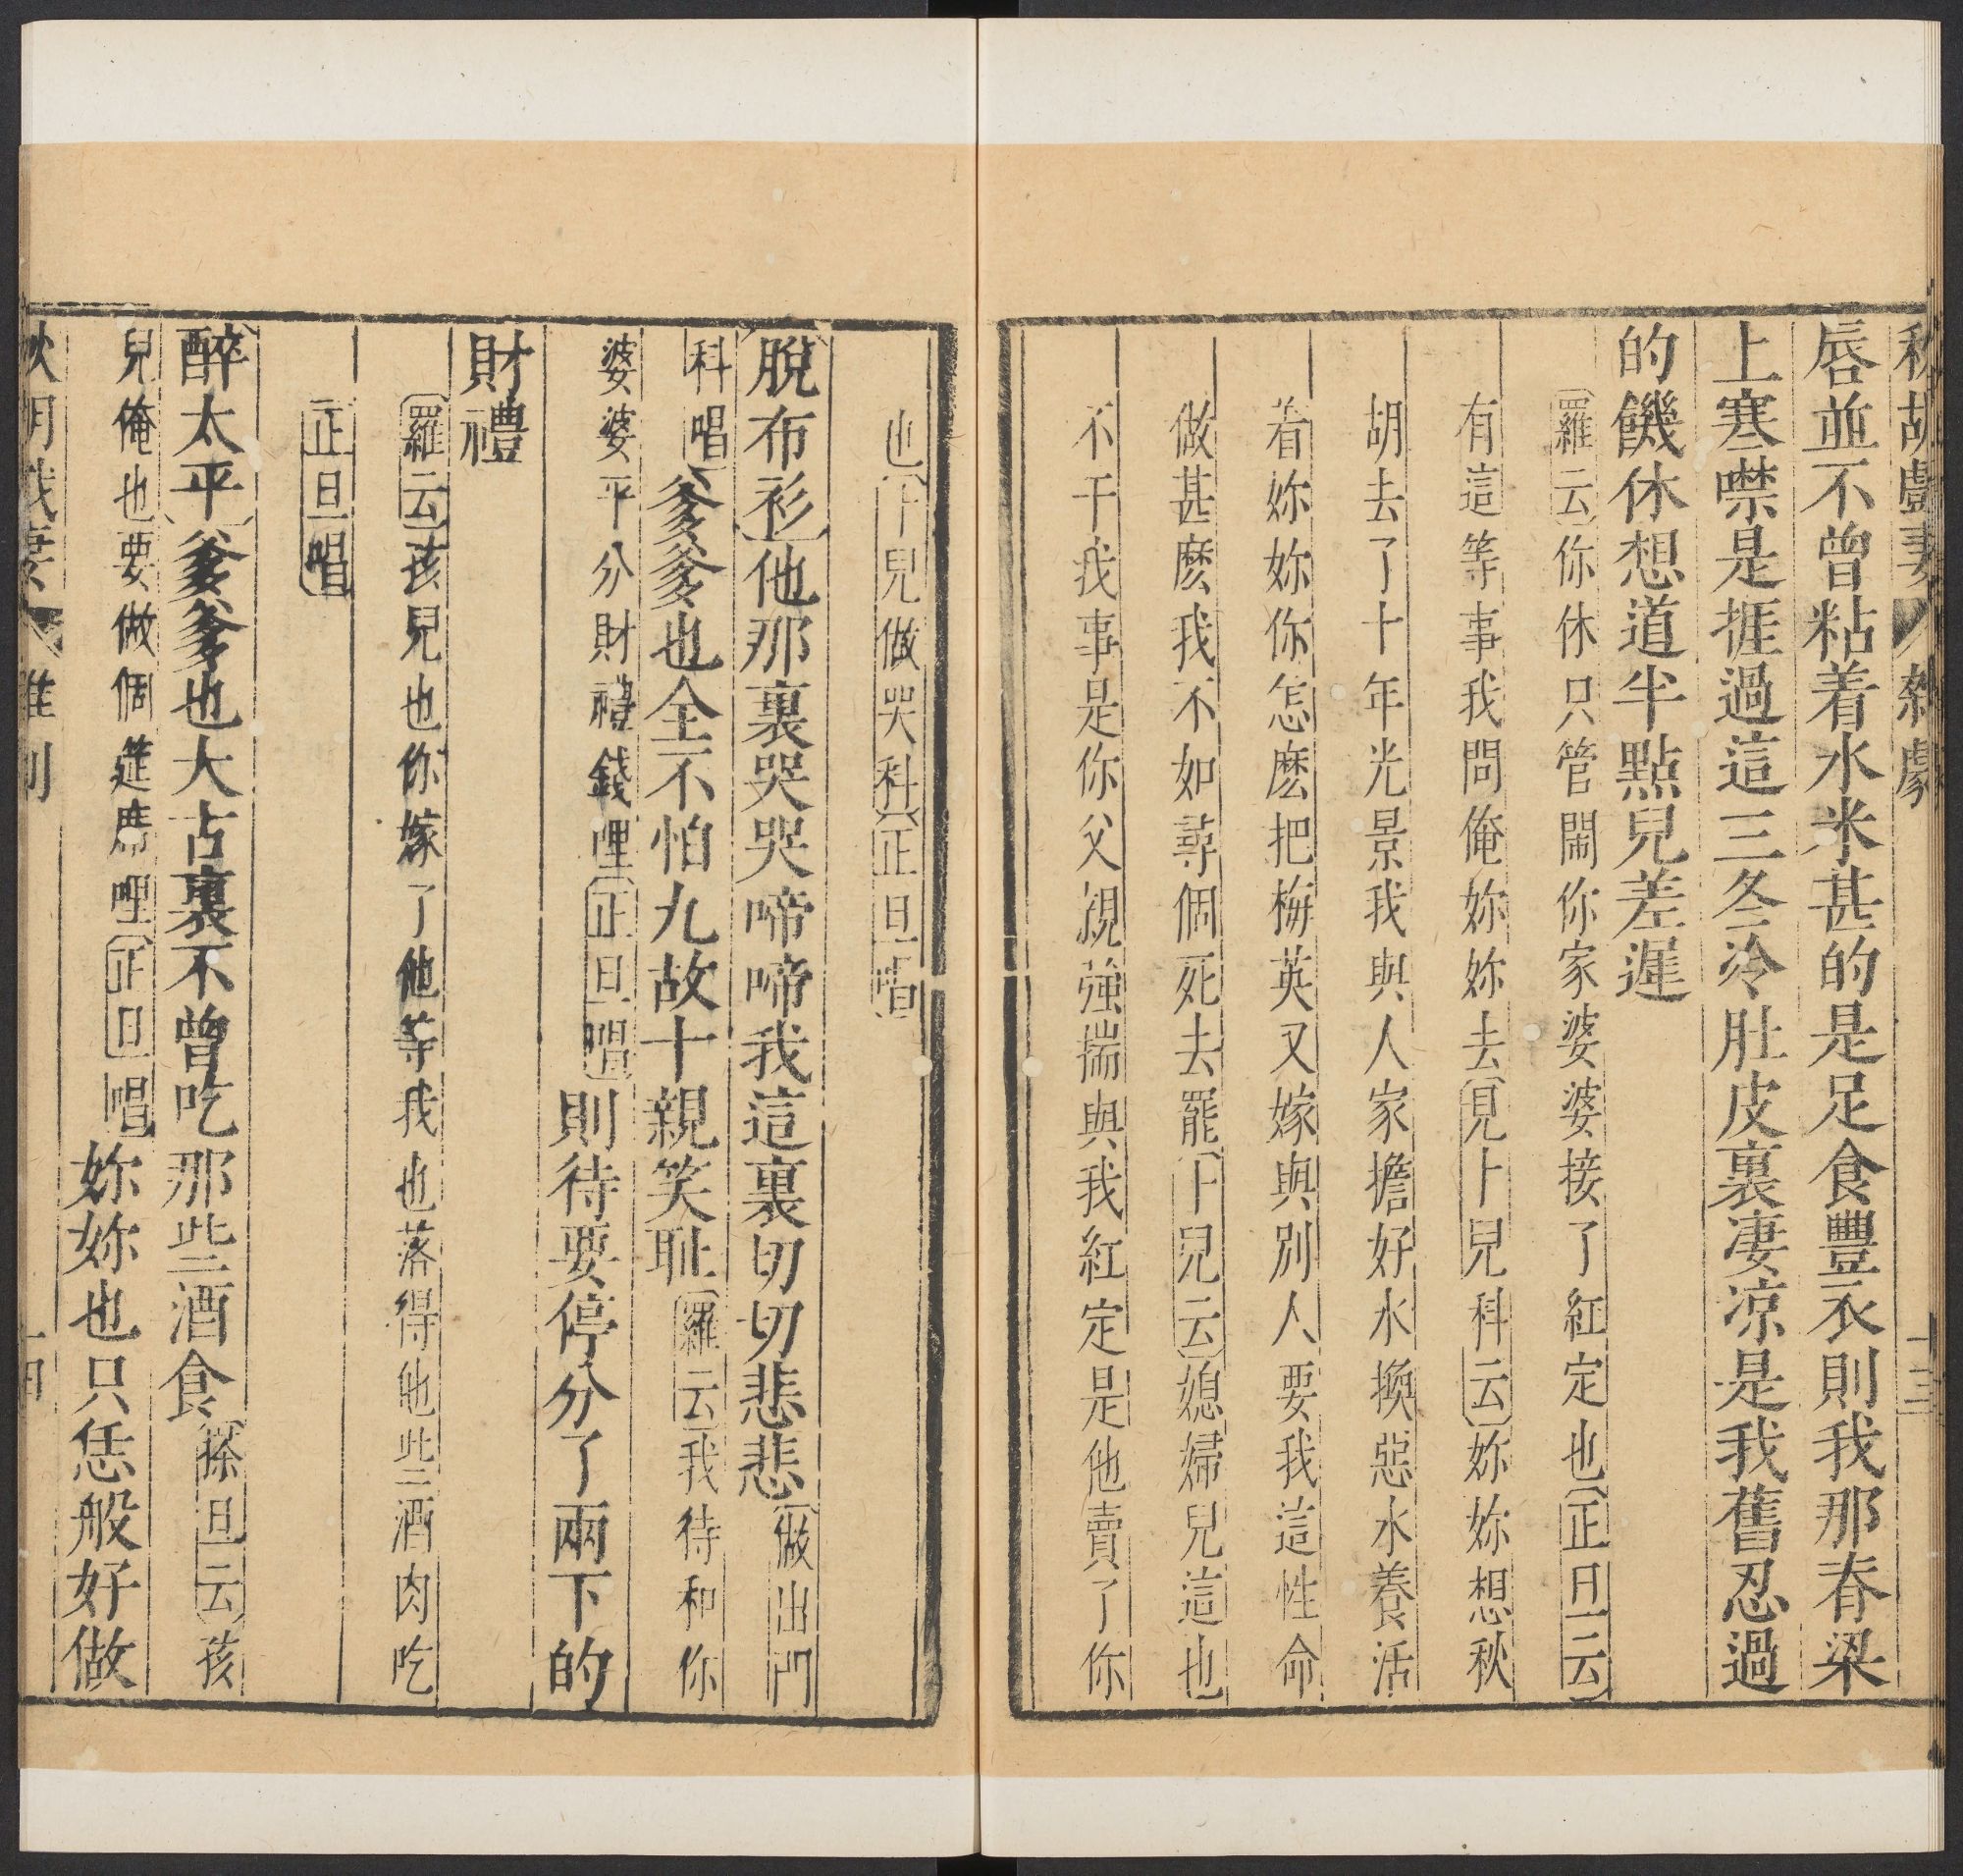 秋胡戲妻 雜劇 十三
唇並不曾粘着水米甚的是足食豐衣則我那春梁
上寒噤是捱過這三冬冷肚皮裏凄凉是我舊忍過
的饑休想道半點兒差遲
羅云你休只管鬧你家婆婆接了紅定也正旦云
有這等事我問俺妳妳去見卜兒科云妳妳想秋
胡去了十年光景我與人家擔好水換惡水養活
着妳妳你怎麽把梅英又嫁與別人要我這性命
做甚麽我不如尋個死去罷卜兒云媳婦兒這也
不干我事是你父親強揣與我紅定是他賣了你
也卜兒做哭科正旦唱
脫布衫他那裏哭哭啼啼我這裏切切悲悲做出門
科唱爹爹也全不怕九故十親笑耻羅云我待和你
婆婆平分財禮錢哩正旦唱則待要停分了兩下的
財禮
羅云孩兒也你嫁了他等我也落得他些酒肉吃
正旦唱
醉太平爹爹也大古裏不曾吃那些酒食搽旦云孩
兒俺也要做個筵席哩正旦唱妳妳也只恁般好做
秋胡戲妻 雜劇 十四